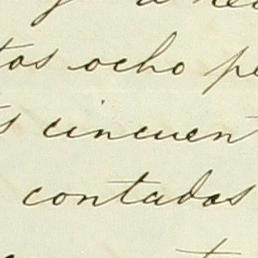 tos ocho pe
s cincuent
contadas